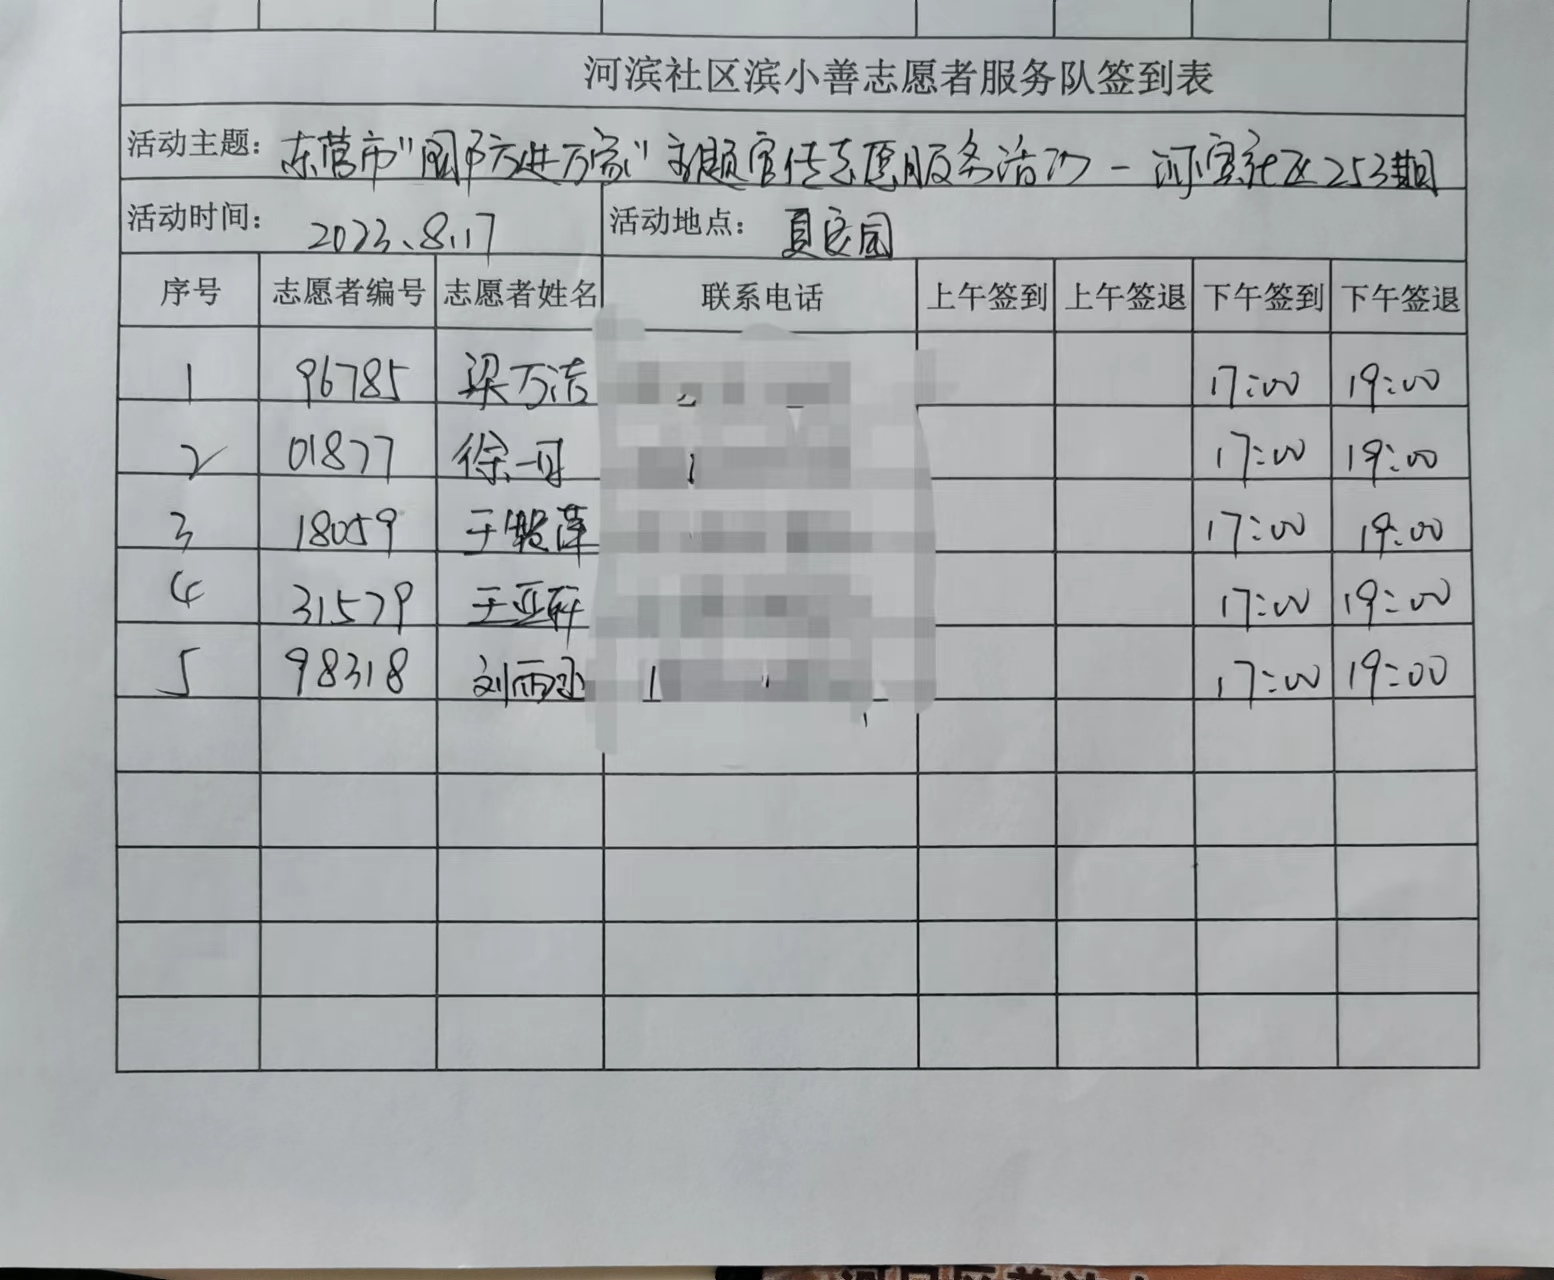 河滨社区滨小善志愿者服务队签到表
活动主题：东营市"国防进万家"主题宣传志愿服务活动-河滨社区253期
活动时间：2023.8.17 活动地点：
序号 志愿者编号 志愿者姓名 联系电话 上午签到 上午签退 下午签到 下午签退
1 96785 梁万洁 17:00 19:00
2 01877 徐一丹 17:00 19:00
3 18059 17:00 19:00
4 31579 王亚轩 17:00 19:00
5 98318 刘雨 17:00 19:00